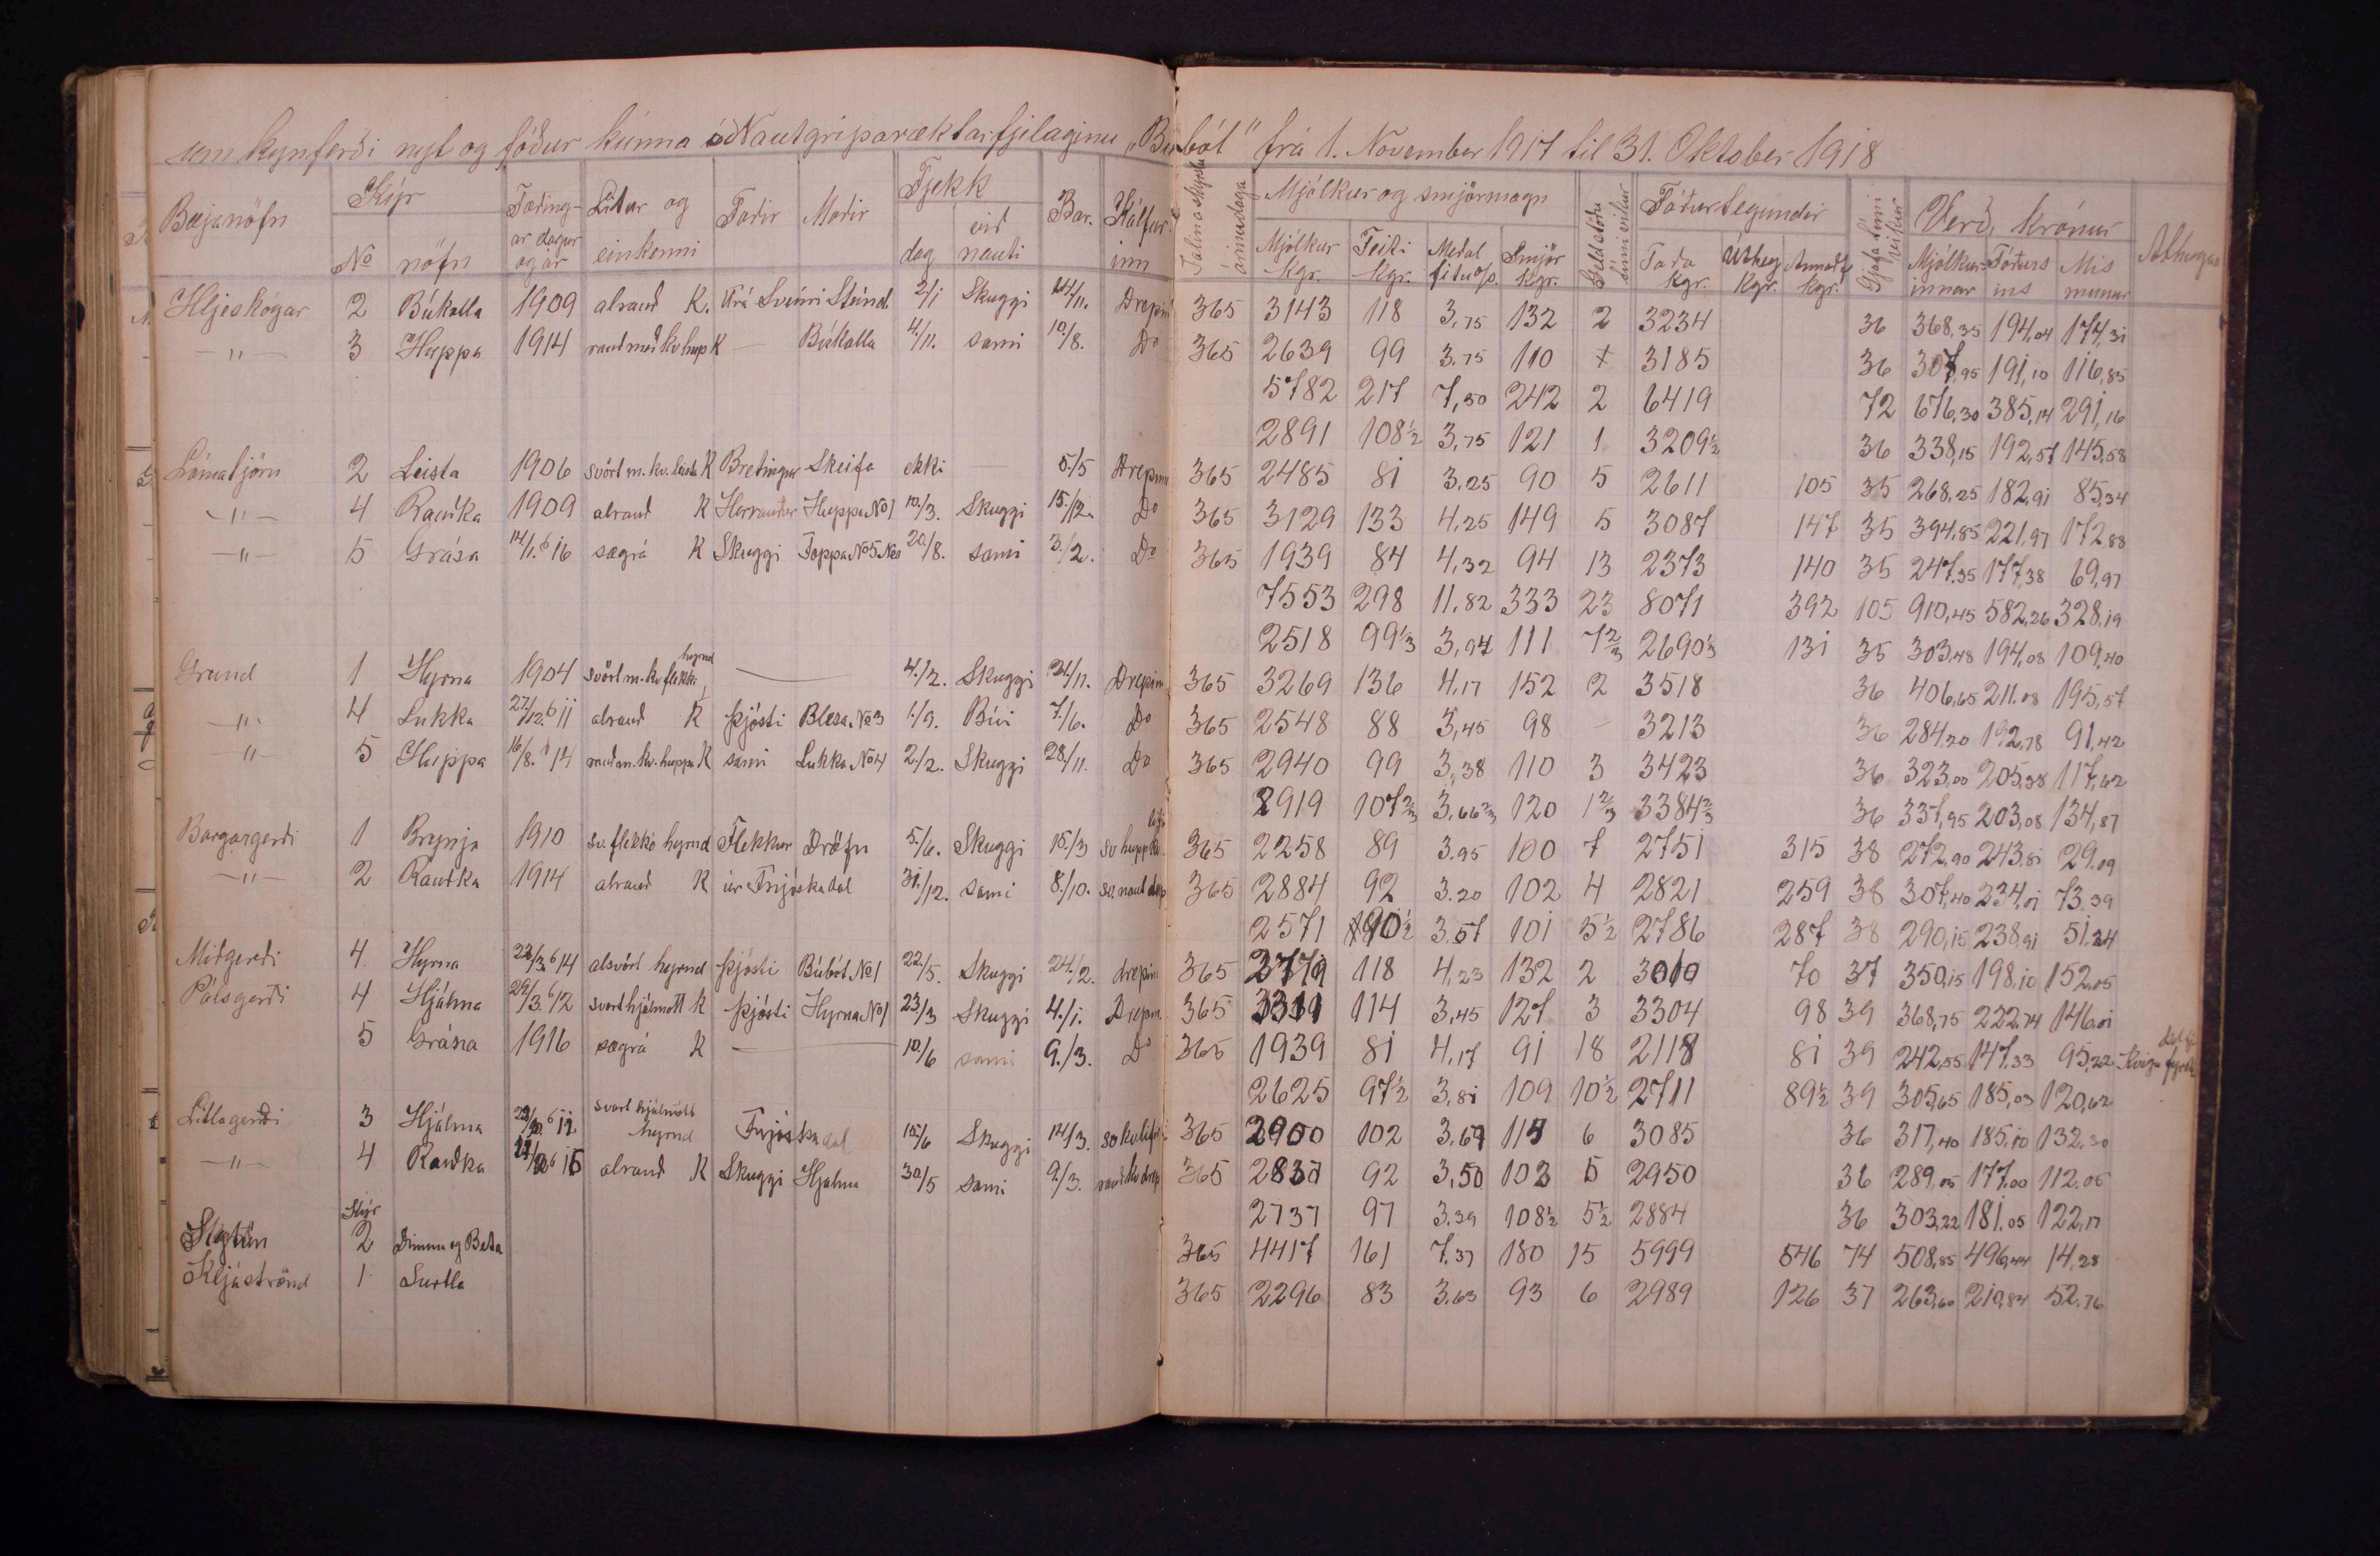 um kynferði nyt og fóður kúnna í Nautgriparæktarfjelaginu „Búbót" frá 1. November 1917 til 31. Oktober 1918
Bæjanöfn Kýr Fæðing- Litur og Faðir Moðir Fjekk Bar. Kálfur- Mjólkur og smjörmagn Fóðurtegundir Verð, krónur
No nöfn ar dagur og ár einkenni dag við nauti inn ánsudaga Mjólkur kgr. Feiti kgr. Meðal fitu o/o Smjör kgr. Geldstöðu tími vikur Taða kgr. Úthey kgr. kgr. Gjafa tími vikur Mjólkur- innar Fóðurs ins Mis munur
Hljeskógar 2 Búkolla 1909 alrauð K. Frá Sveini Steind. 2/1 Skuggi 14/11. Drepin 365 3143 118 3,75 132 2 3234 36 368,35 194,04 174,31
— " — 3 Huppa 1914 rauð með kv hup K — Búkolla 4/11. sami 10/8. Do 365 2639 99 3.75 110 + 3185 36 307,95 191,10 116,85
5782 217 7,50 242 2 6419 72 676,30 385,14 291,16
2891 108½ 3,75 121 1 3209½ 36 338,15 192,57 145,58
Lómatjörn 2 Leista 1906 svört m. kv. leista K Bretingur Skeifa ekki — 5./5 Drepinn 365 2485 81 3.25 90 5 2611 105 35 268,25 182,91 85,34
— " — 4 Rauðka 1909 alrauð K Herrauður Huppa No 1 10/3. Skuggi 15./12. Do 365 3129 133 4,25 149 5 3087 147 35 394,85 221,97 172,88
— " — 5 Grása 14/1. 16 sægrá K Skuggi Toppa No 5 20/8. sami 3./2. Do 365 1939 84 4,32 94 13 2373 140 35 247,35 177,38 69,97
7553 298 11,82 333 23 8071 392 105 910,45 582,26 328,19
2518 99⅓ 3,94 111 7⅔ 2690⅓ 131 35 303,48 194,08 109,40
Grund 1 Hyrna 1904 svört m. kv flekki hyrnd — 4./2. Skuggi 24/11. Drepin 365 3269 136 4,17 152 2 3518 36 406,65 211.08 195,57
— " — 4 Lukka 27/12. 11 alrauð K Þjósti Blesa No 3 1./9. Búi 7./6. Do 365 2548 88 3,45 98 — 3213 36 284,20 192,78 91,42
— " — 5 Huppa 16/8. 14 rauð m. kv. huppa K sami Lukka No 4 2./2. Skuggi 28/11. Do 365 2940 99 3,38 110 3 3423 36 323,00 205,38 117,62
2919 107⅔ 3,66⅔ 120 1⅔ 3384⅔ 36 337,95 203,08 134,87
Borgargerði 1 Brynja 1910 sv. flekkó hyrnd Flekkur Dröfn 5./6. Skuggi 15./3 sv hupp kv. 365 2258 89 3.95 100 7 2751 315 38 272,90 243,81 29.09
— " — 2 Rauðka 1914 alrauð K úr Fnjóskadal 31./12. sami 8./10. sv. naut drep 365 2884 92 3.20 102 4 2821 259 38 307,40 234,01 73.39
2571 90½ 3.57 101 5½ 2786 287 38 290,15 238,91 51,24
Miðgerði 4 Hyrna 14 alsvört hyrnd Þjósti Búbót No 1 22./5. Skuggi 24./2. drepin 365 118 4,23 132 2 3010 70 37 350,15 198,10 152,05
Pálsgerði 4 Hjálma 29/3. 12 svarthjálmótt K Þjósti Hyrna No 1 23/3 Skuggi 4./1. Drepin 365 3319 114 3,45 127 3 3304 98 39 368,75 222,74 146,01
5 Grása 1916 sægrá K — 10./6 sami 9./3. Do 365 1939 81 4,17 91 18 2118 81 39 242,55 147,33 95,22
2625 97½ 3,81 109 10½ 2711 89½ 39 305,65 185,03 120,62
Litlagerði 3 Hjálma svart hjálmótt hyrnd Fnjóskadal 15./6 Skuggi 14/3. 365 2900 102 3.69 6 3085 36 317,40 185,10 132,30
— " — 4 Rauðka alrauð K Skuggi Hjálma 30./5 sami 9./3. rauð kv drep 365 92 3,50 103 5 2950 36 289,05 177,00 112,05
Kýr 2737 97 3.39 108½ 5½ 2884 36 303,22 181,05 122,17
Sigtún 2 Dimma og Beta 365 4417 161 7.37 180 15 5999 546 74 508,85 496,44 14,28
Kljáströnd 1 Surtla 365 2296 83 3,63 93 6 2989 126 37 263,60 210,84 52,76